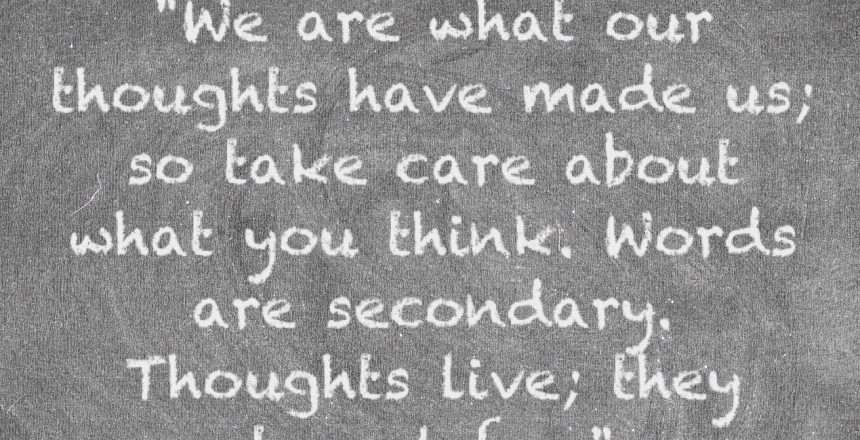 "We are what our
thoughts have made us;
so take care about
what you think. Words
are secondary.
Thoughts live; they